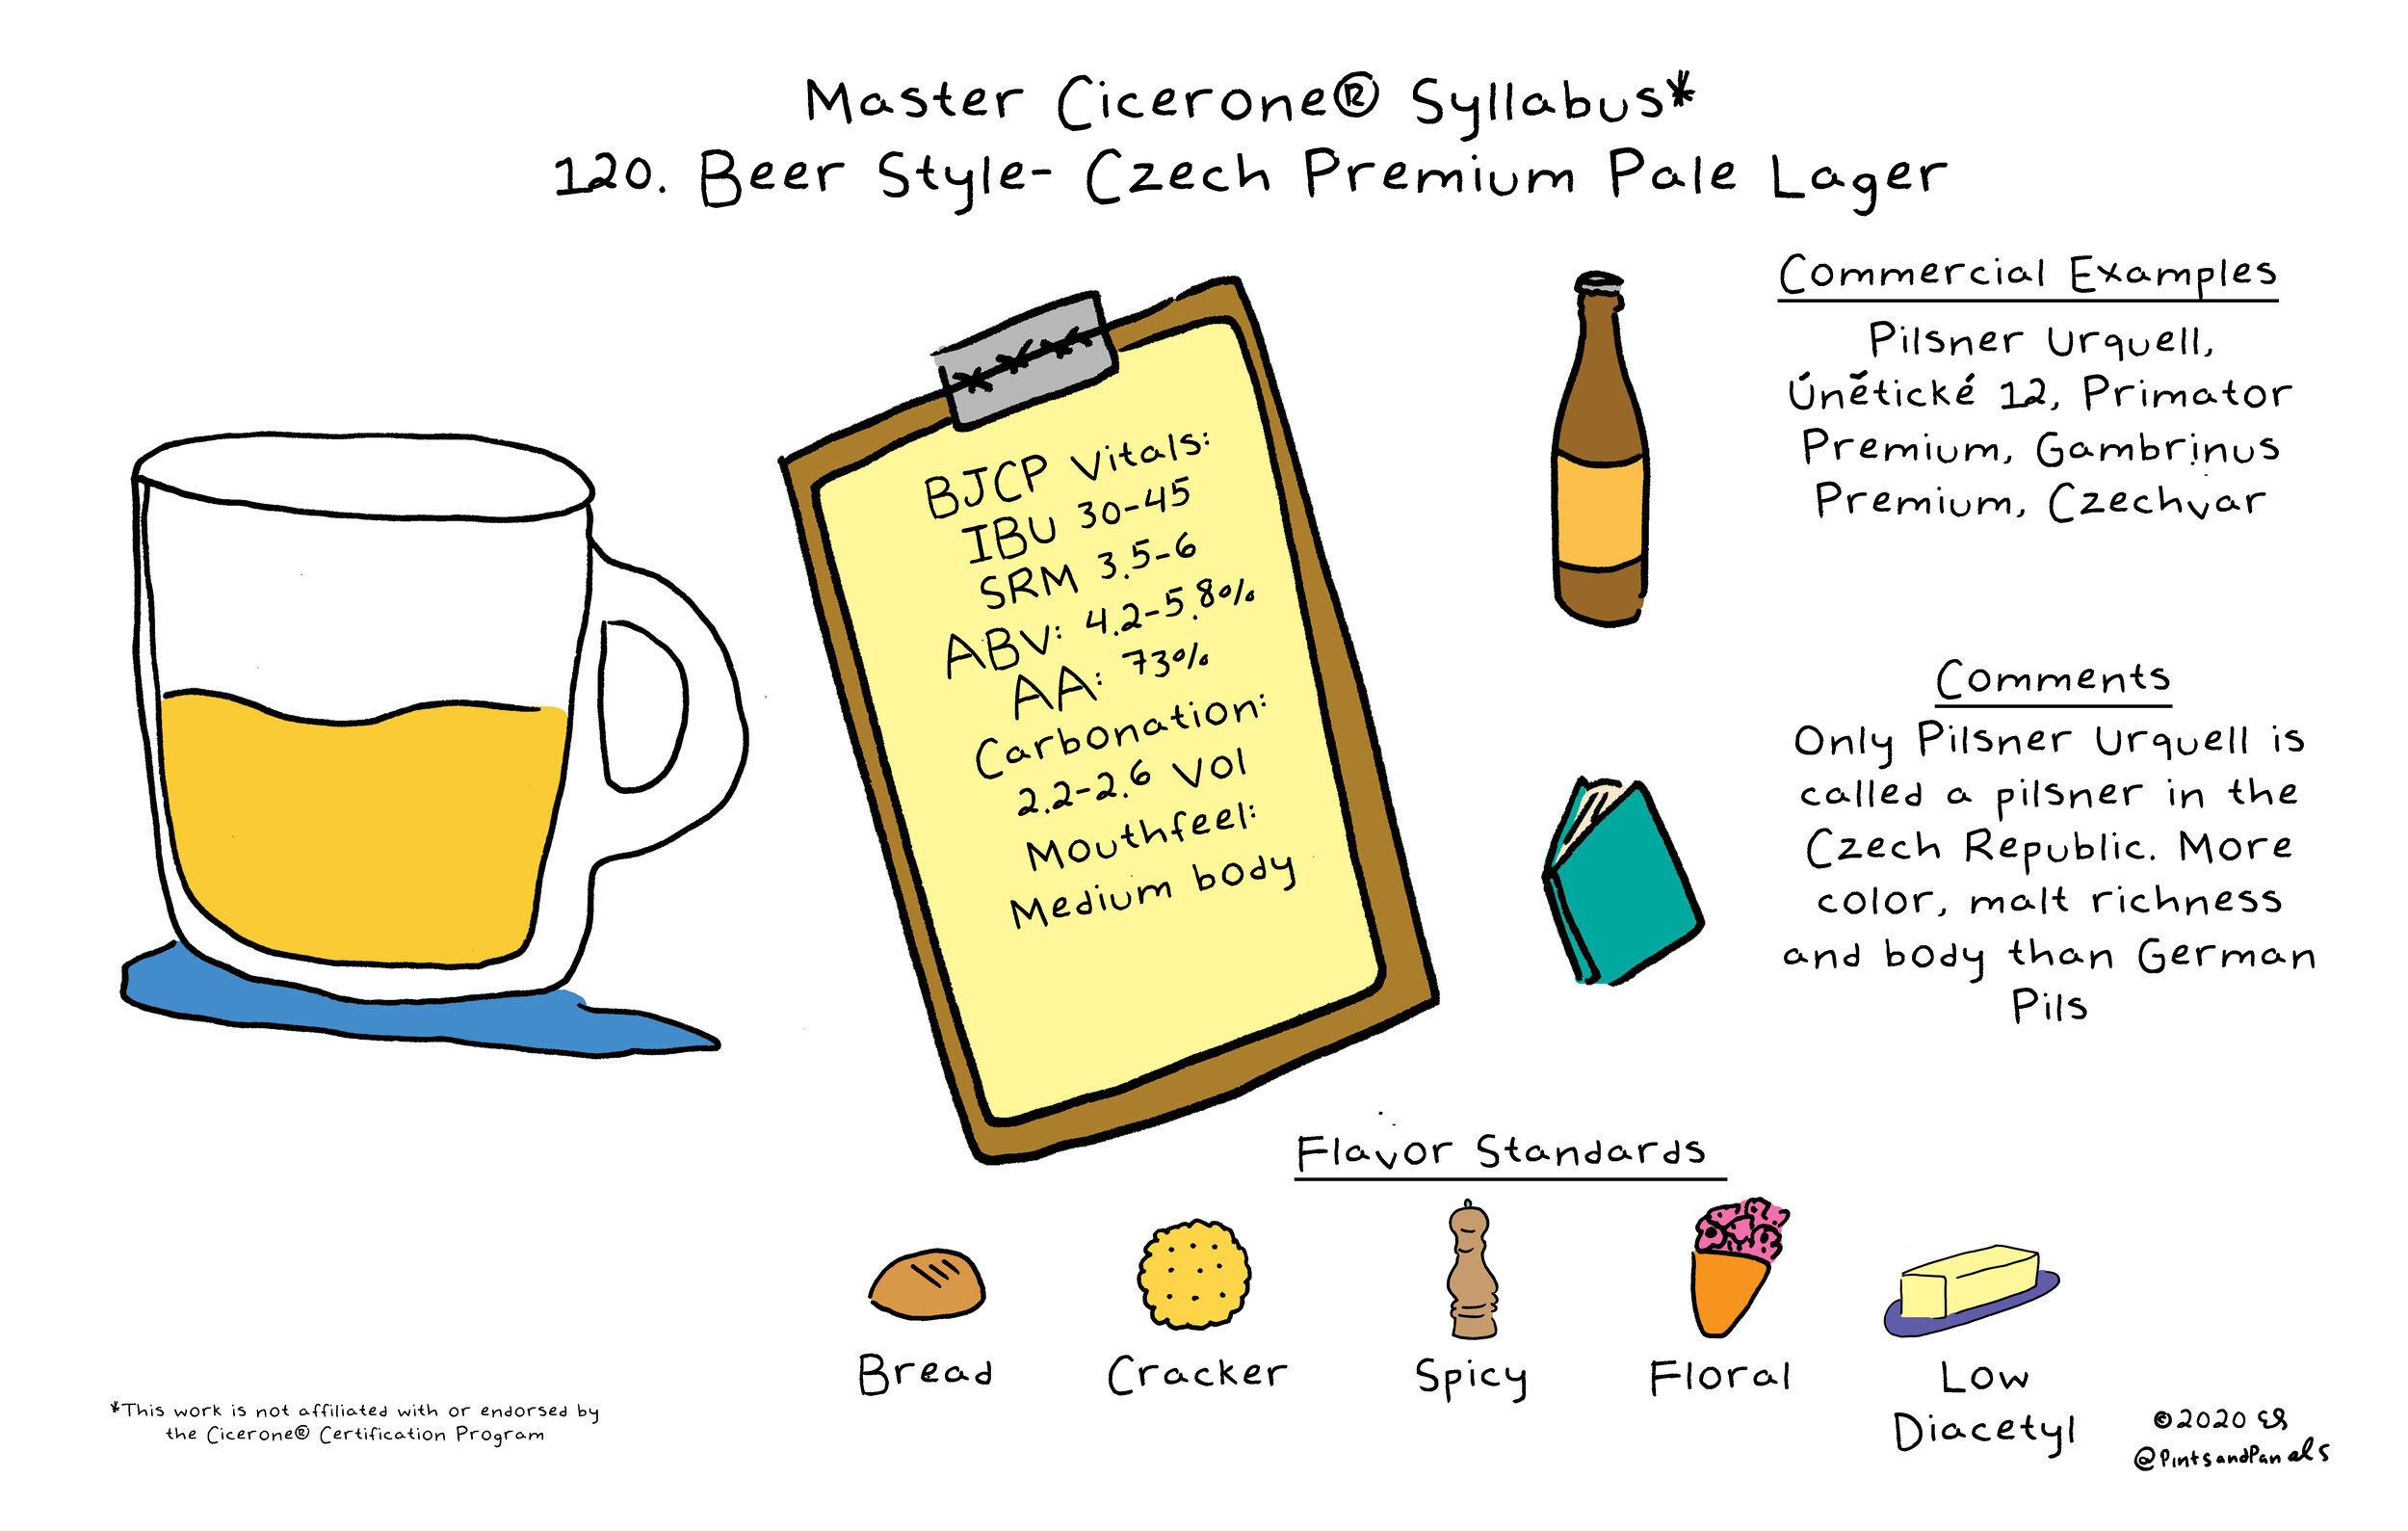 Master Cicerone® Syllabus*
120. Beer Style- Czech Premium Pale Lager
BJCP Vitals:
IBU 30-45
SRM 3.5-6
ABV: 4.2-5.8%
AA: 73%
Carbonation:
2.2-2.6 Vol
Mouthfeel:
Medium body
Commercial Examples
Pilsner Urquell,
Únětické 12, Primator
Premium, Gambrinus
Premium, Czechvar
Comments
Only Pilsner Urquell is
called a pilsner in the
Czech Republic. More
color, malt richness
and body than German
Pils
Flavor Standards
Bread
Cracker
Spicy
Floral
Low
Diacetyl
*This work is not affiliated with or endorsed by
the Cicerone® Certification Program
©2020 ES
@PintsandPanels